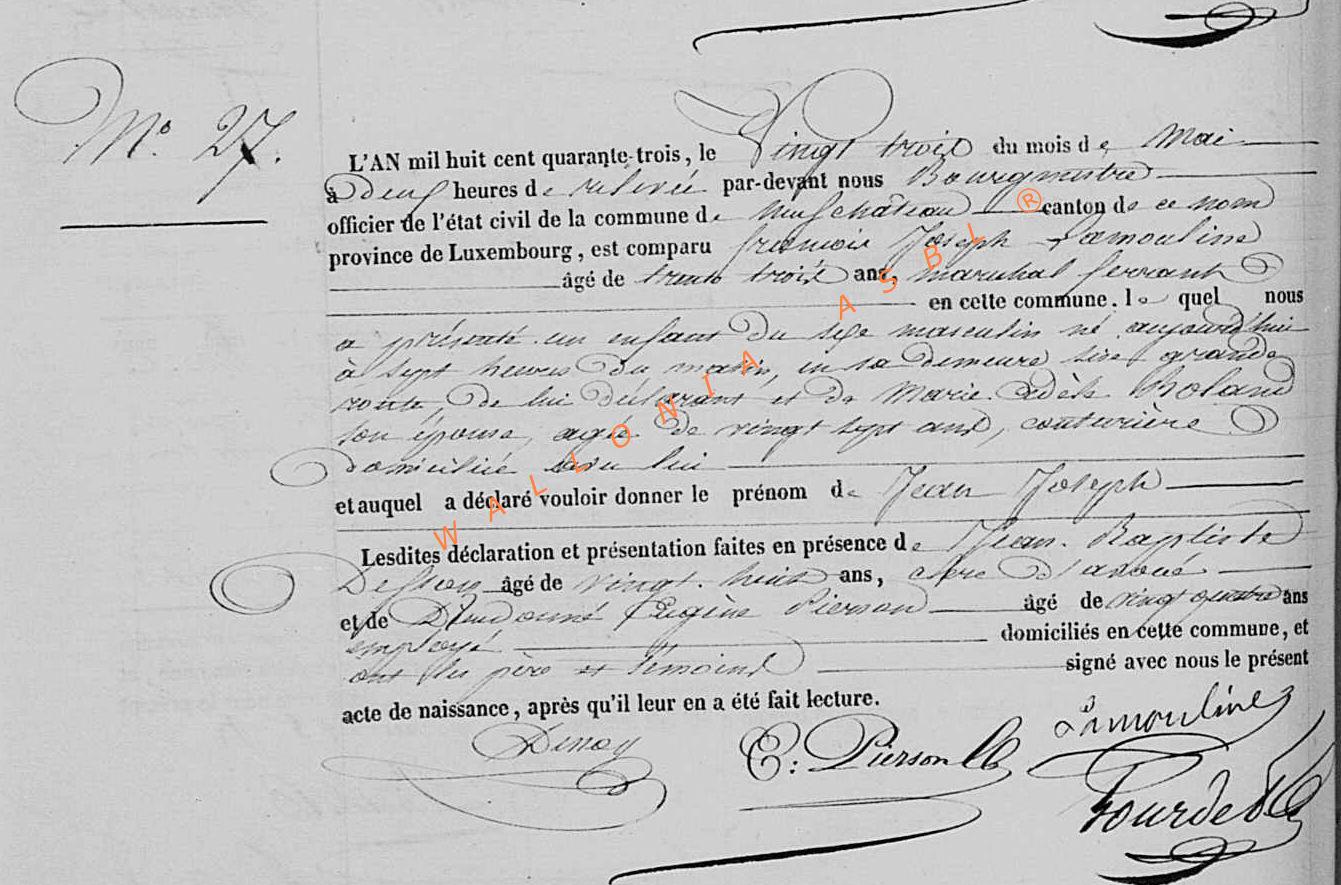 N° 27.
L'AN mil huit cent quarante-trois, le Vingt trois du mois de Mai
à Deux heures de relevée par-devant nous Bourgmestre
officier de l'état civil de la commune de Neufchateau canton de ce nom
province de Luxembourg, est comparu françois Joseph Lamouline
âgé de trente trois ans, maréchal ferrant
en cette commune. le quel nous
a présenté un enfant du sexe masculin né aujourd'hui
à sept heures du matin, en sa demeure sise grande
route, de lui déclarant et de Marie Adèle Roland
son épouse, agée de vingt sept ans, couturière
domiciliée avec lui
et auquel a déclaré vouloir donner le prénom de Jean Joseph
Lesdites déclaration et présentation faites en présence de Jean-Baptiste
âgé de vingt-huit ans, clerc d'avoué
et de Dieudonné Eugène Pierson âgé de vingt quatre ans
employé domiciliés en cette commune, et
ont les père et témoins signé avec nous le présent
acte de naissance, après qu'il leur en a été fait lecture.
Lamouline
E: Pierson
WALLONIA ASBL ®